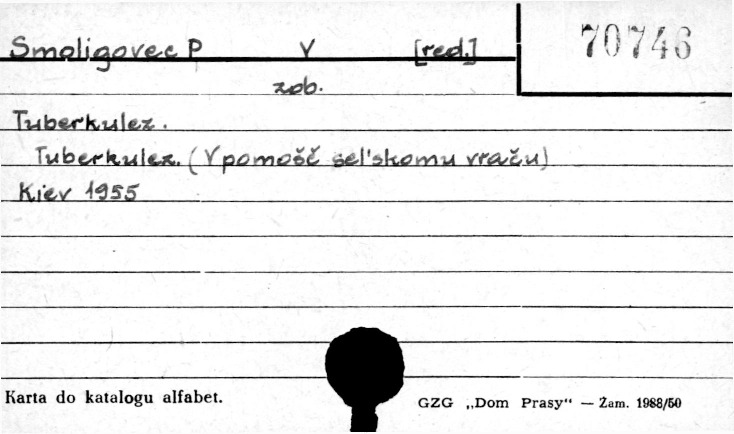 Smoligovec P V [red.]
70746
zob.
Tuberkulez.
Tuberkulez. (V pomošč sel'skomu vraču)
Kiev 1955
Karta do katalogu alfabet.
GZG „Dom Prasy" — Żam. 1988/50